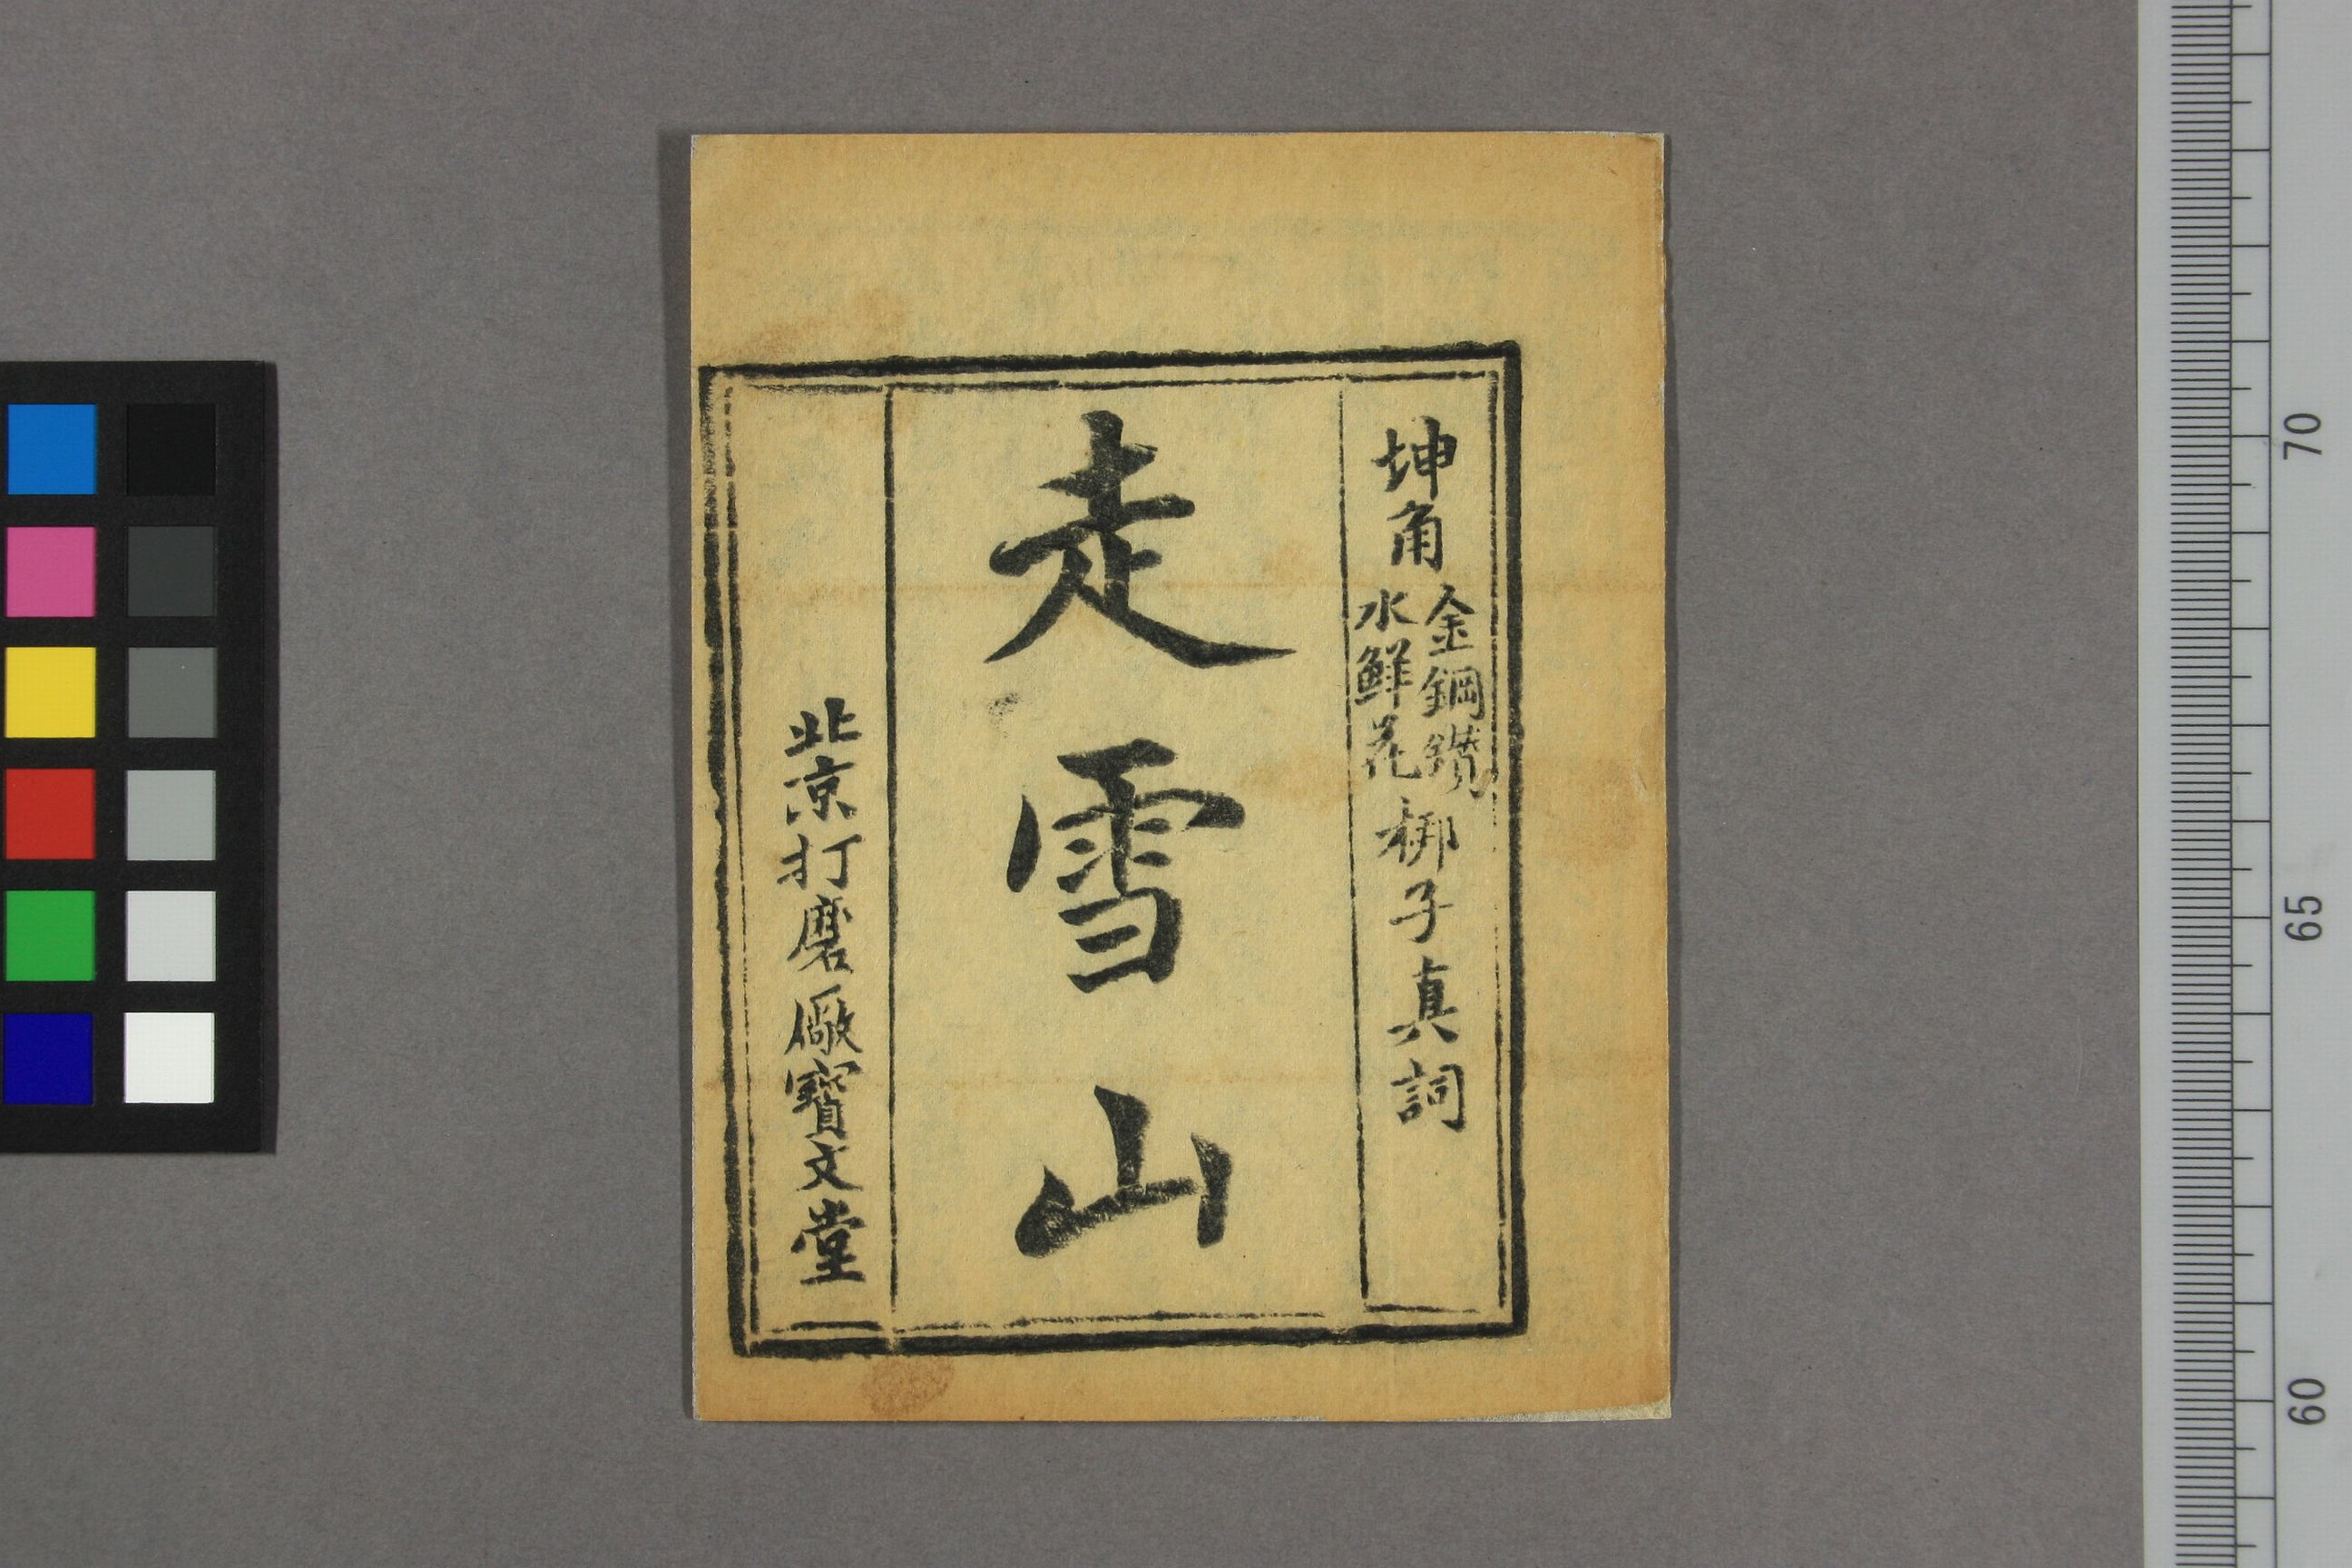 坤角
金鋼鑽
水鮮花
梆子真詞
走雪山
北京打磨廠寶文堂
70
65
60